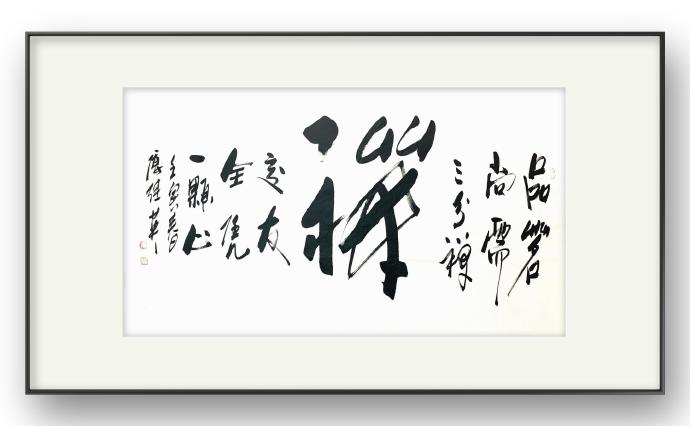 品茗
尚需
三分禅
禅
交友
全凭
一颗心
壬寅春日